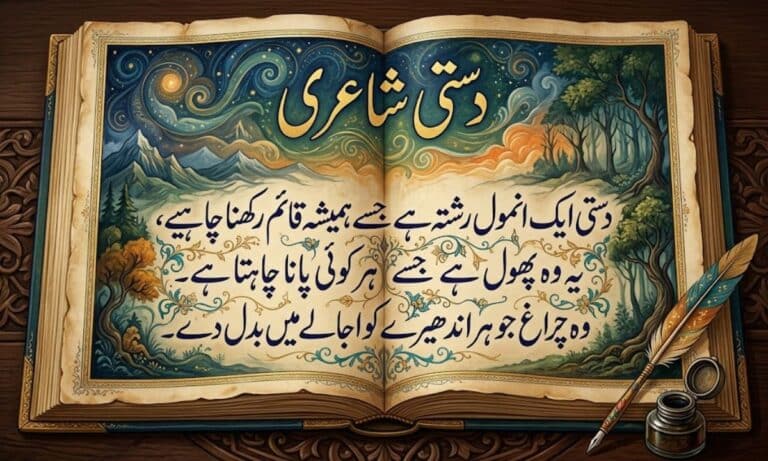 دستی شاعری
دستی ایک انمول رشتہ ہے جسے ہمیشہ قائم رکھنا چاہیے،
یہ وہ پھول ہے جسے ہر کوئی پانا چاہتا ہے۔
وہ چراغ جو ہر اندھیرے کو اجالے میں بدل دے۔